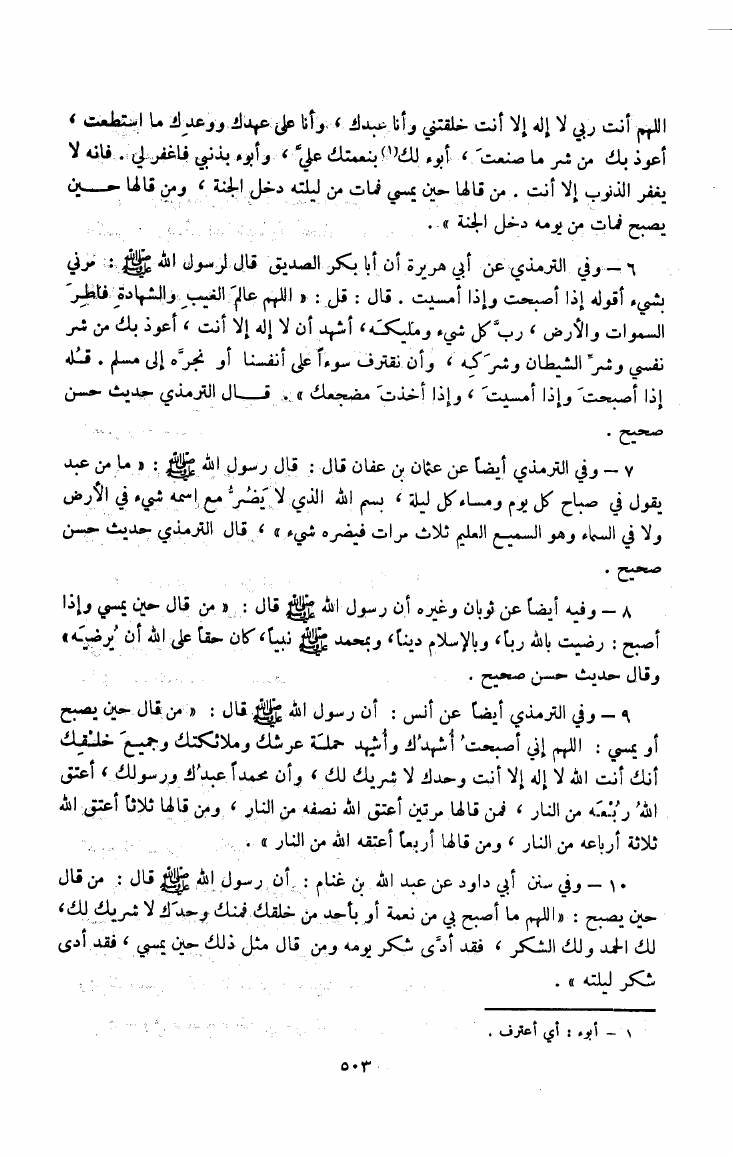 اللهم أنت ربي لا إله إلا أنت خلقتني وأنا عبدك ، وأنا على عهدك ووعدك ما استطعت ،
أعوذ بك من شر ما صنعتَ ، أبوء لك(١) بنعمتك عليَّ ، وأبوء بذنبي فاغفر لي . فانه لا
يغفر الذنوب إلا أنت . من قالها حين يمسي فمات من ليلته دخل الجنة ، ومن قالها حـــين
يصبح فمات من يومه دخل الجنة » .
٦ – وفي الترمذي عن أبي هريرة أن أبا بكر الصديق قال لرسول الله ﷺ : مرني
بشيء أقوله إذا أصبحت وإذا أمسيت . قال : قل : « اللهم عالمَ الغيبِ والشهادةِ فاطرَ
السموات والأرض ، ربَّ كل شيء ومليكَه ، أشهد أن لا إله إلا أنت ، أعوذ بك من شر
نفسي وشرِّ الشيطان وشرَكِه ، وأن نقترف سوءاً على أنفسنا أو نجرَّه إلى مسلم . قـُله
إذا أصبحتَ وإذا أمسيتَ ، وإذا أخذتَ مضجعك » . قـــال الترمذي حديث حسن
صحيح .
٧ – وفي الترمذي أيضاً عن عثمان بن عفان قال : قال رسول الله ﷺ : « ما من عبد
يقول في صباح كل يوم ومساء كل ليلة ، بسم الله الذي لا يَضُرُّ مع اسمه شيء في الأرض
ولا في السماء وهو السميع العليم ثلاث مرات فيضره شيء » ، قال الترمذي حديث حسن
صحيح .
٨ – وفيه أيضاً عن ثوبان وغيره أن رسول الله ﷺ قال : « من قال حين يمسي وإذا
أصبح : رضيت بالله رباً، وبالإسلام ديناً، وبمحمد ﷺ نبياً، كان حقاً على الله أن يُرضيَه»
وقال حديث حسن صحيح .
٩ – وفي الترمذي أيضاً عن أنس : أن رسول الله ﷺ قال : « من قال حين يصبح
أو يمسي : اللهم إني أصبحتُ أُشهدُك وأُشهِد حملةَ عرشك وملائكتك وجميعَ خلـْقك
أنك أنت الله لا إله إلا أنت وحدك لا شريك لك ، وأن محمداً عبدُك ورسولك ، أعتق
اللهُ رُبْعَه من النار ، فمن قالها مرتين أعتق الله نصفه من النار ، ومن قالها ثلاثاً أعتق الله
ثلاثة أرباعه من النار ، ومن قالها أربعاً أعتقه الله من النار » .
١٠ – وفي سنن أبي داود عن عبد الله بن غنام : أن رسول الله ﷺ قال : من قال
حين يصبح : «اللهم ما أصبح بي من نعمة أو بأحد من خلقك فمنك وحدَك لا شريك لك،
لك الحمد ولك الشكر ، فقد أدَّى شكر يومه ومن قال مثل ذلك حين يمسي ، فقد أدى
شكر ليلته » .
١ – أبوء : أي أعترف .
٥٠٣